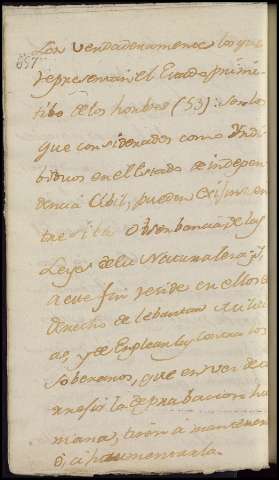 Son verdaderamente los que
657
representan el Estado primi-
tibo de los hombres (53): son los
que considerados como Yndi-
biduos en el Estado de indepen-
dencia Cibil, pueden exijirse en-
tre si la observancia de las
Leyes de la Naturaleza;
a cuyo fin reside en ellos el
derecho de lebantar
y de emplearlas contra los
soberanos, que en vez de co-
rrejir la depravacion hu-
mana, tiran a mantener-
ó, á haumentarla.